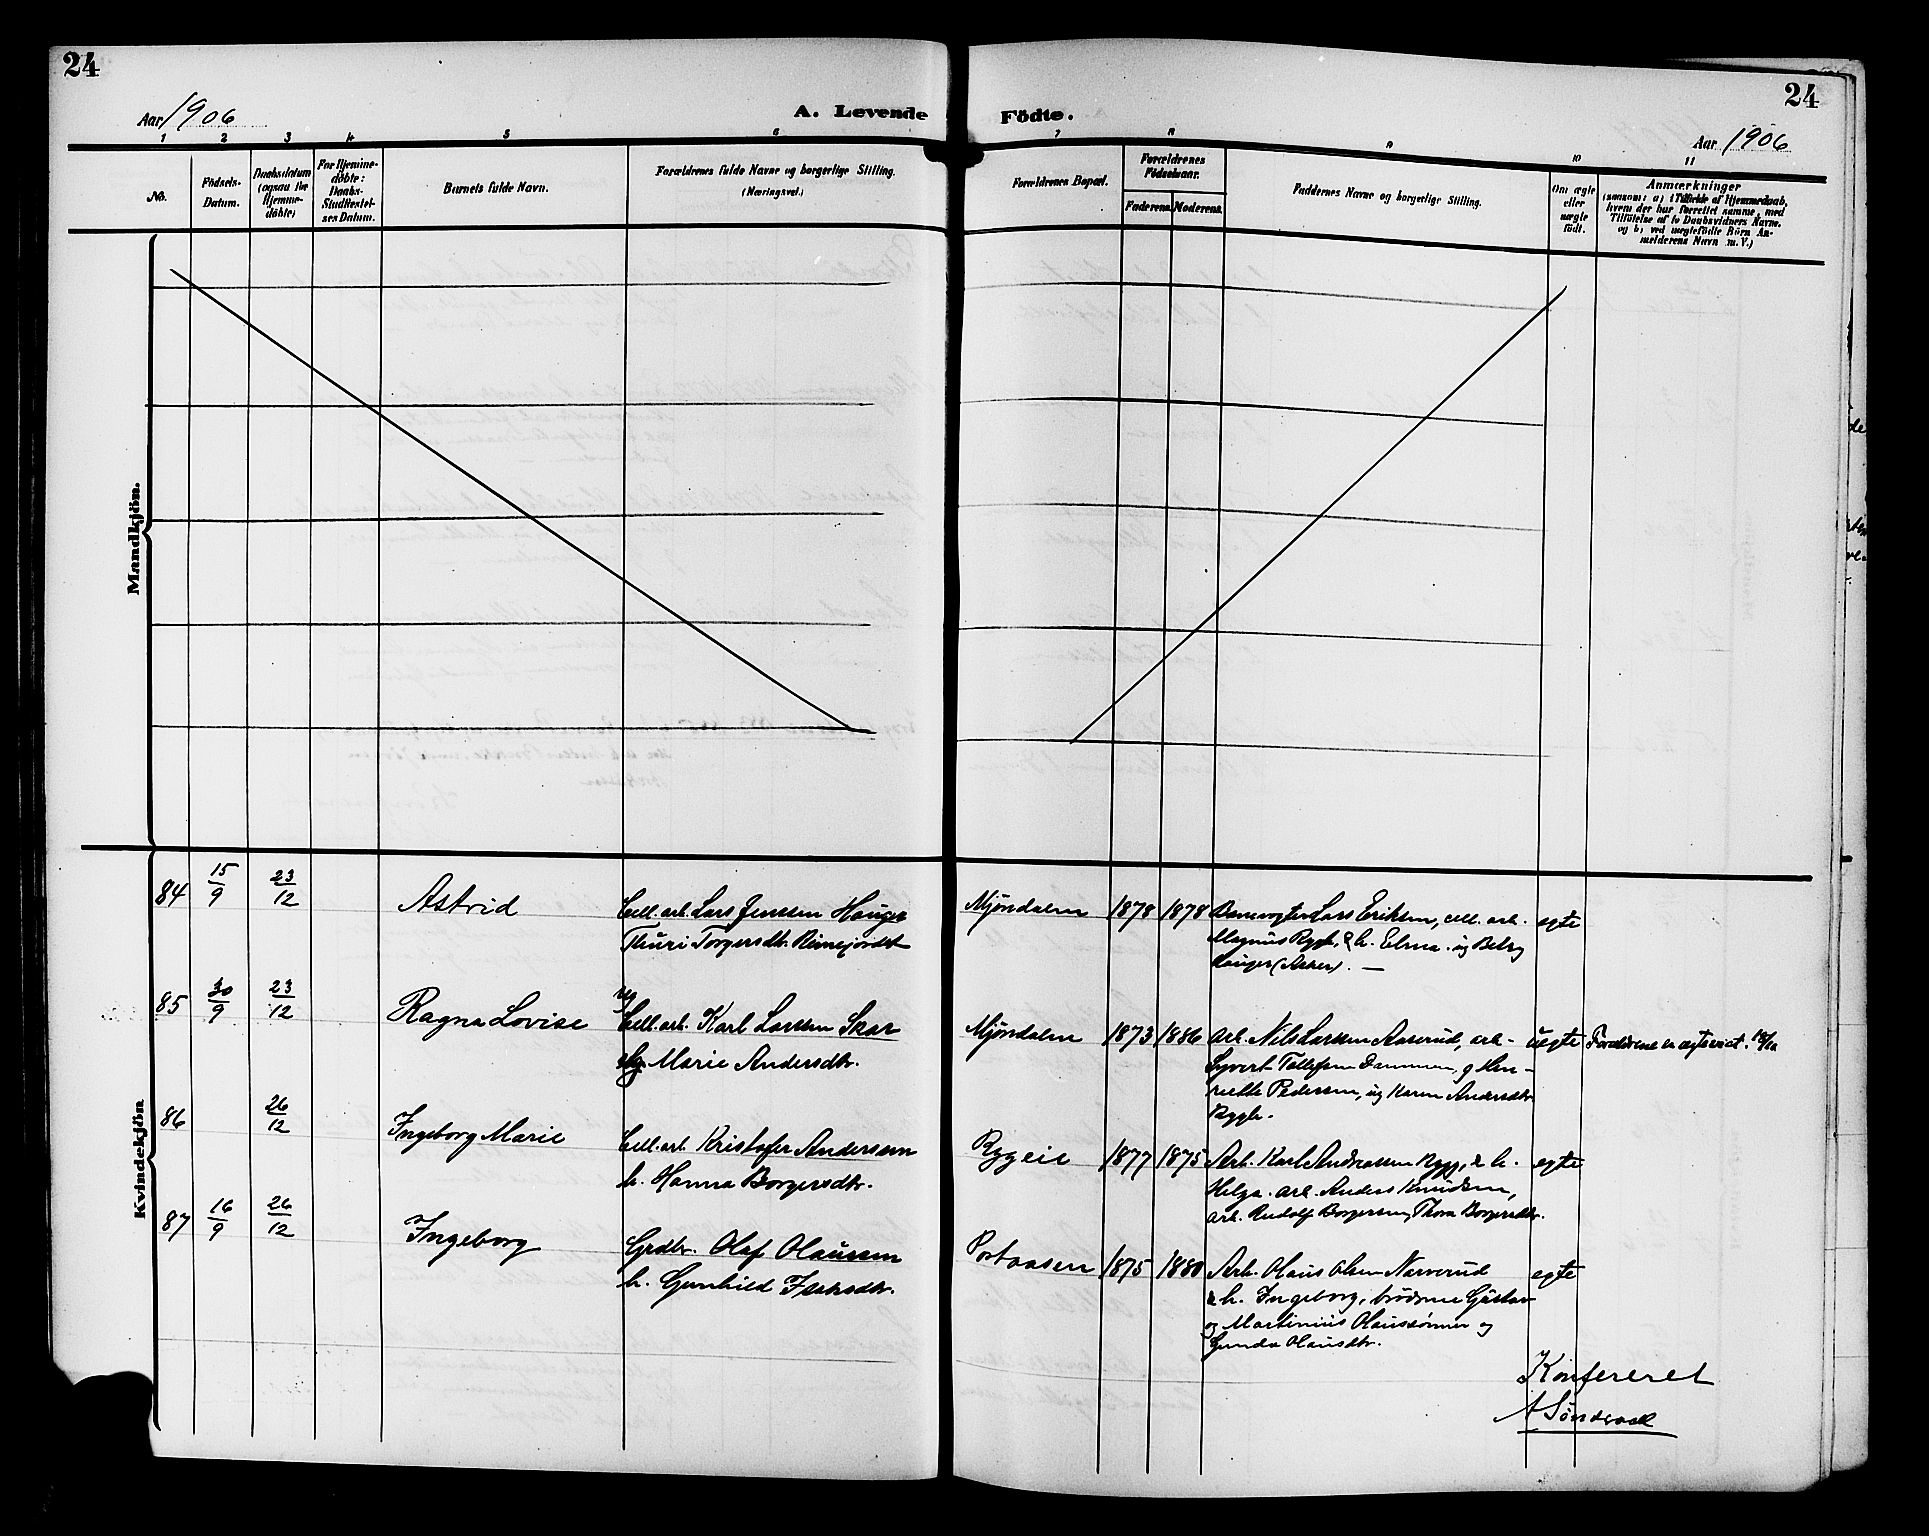 24
Aar 1906
A. Levende
Födte.
24
Aar 1906
1 2 3 4 5 6 7 8 9 10 11
No.
Födsels-
Datum.
Daabsdatum
(ogsaa for
Hjemme-
døbte)
For Hjemme-
døbte:
Daabs-
Stadfestel-
ses Datum.
Barnets fulde Navn.
Forældrenes fulde Navne og borgerlige Stilling.
(Næringsvei.)
Forældrenes Bopæl.
Forældrenes
Födselsaar.
Faderens. Moderens.
Faddernes Navne og borgerlige Stilling.
Om ægte
eller
uægte
födt.
Anmærkninger
(saasom: a) i Tilfælde af Hjemmedaab,
hvem der har forrettet samme, med
Tilföielse af to Daabsvidners Navne,
og b) ved uægtefödte Börn An-
melderens Navn m. V.)
Mandkjön.
Kvindekjön
84 15/9 23/12 Astrid
Cell.arb. Lars Jenssen Hauger
Thuri Torgersdtr. Rimejordet
Mjøndalen 1878 1878
Banevogter Lars Eriksen, cell. arb.
Magnus Rygh, & h. Elma. og Betsy
Hauger (Asker). —
egte
85 30/9 23/12 Ragna Lovise
ug
Cell.arb. Karl Larssen Skar
Marie Andersdtr.
Mjøndalen 1873 1886
Arb. Nils Larssen Aaserud, arb-
Syvert Tollefsen Dammen, g Hen-
riette Pedersen, ug Karen Andersdtr
Rygh.
uegte
Forældrene er egteviet.
86 26/12 Ingeborg Marie
Cell.arb. Kristofer Anderssen
h. Hanna Borgersdtr.
Rygeie 1877 1875
Arb. Karl Andreassen Rygg, & h.
Helga. arb. Anders Knudsen,
arb. Rudolf Borgersen, Thora Borgersdtr.
egte
87 16/9 26/12 Ingeborg
Grdbr. Olaf Olaussen
h. Gunhild Isaksdtr.
Portaasen 1875 1880
Arb. Olaus Olsen Narverud
& h. Ingeborg, brødrene Gustav
og Martinius Olaussønner og
Gunda Olausdtr.
egte
Konfereret